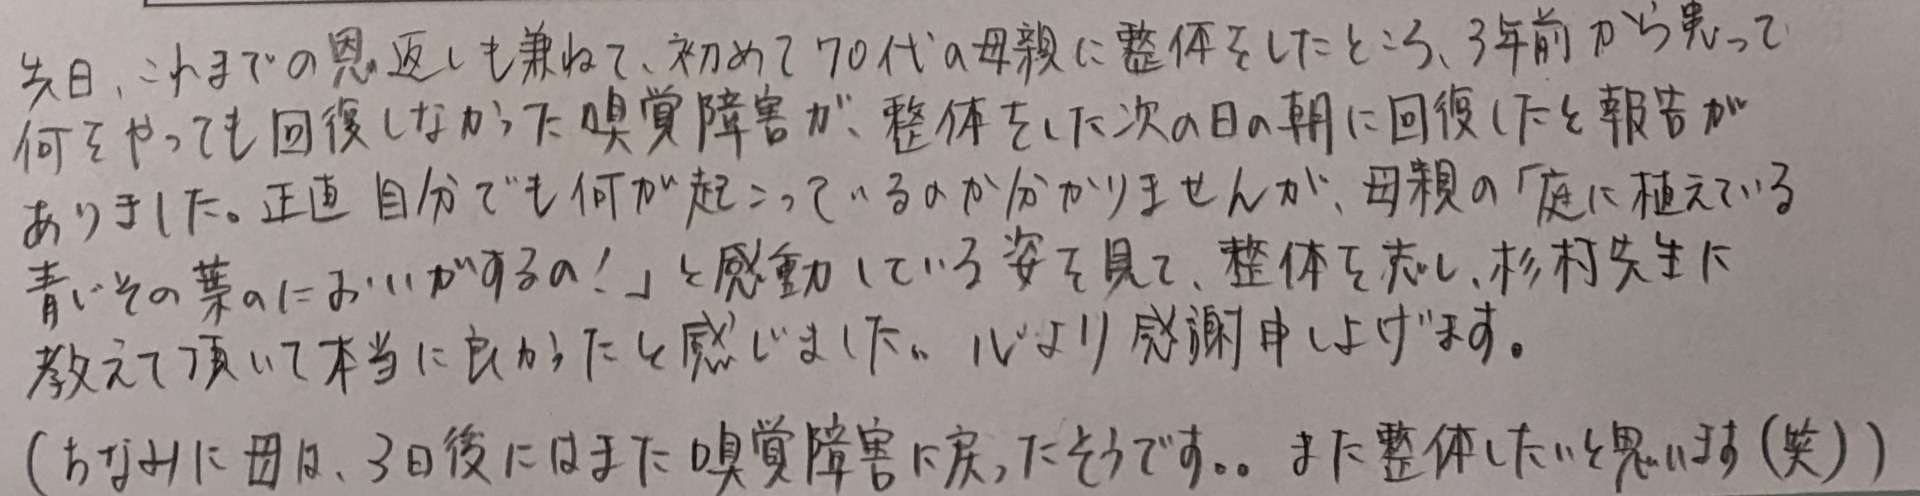 先日、これまでの恩返しも兼ねて、初めて70代の母親に整体をしたところ、3年前から患って
何をやっても回復しなかった嗅覚障害が、整体をした次の日の朝に回復したと報告が
ありました。正直自分でも何が起こっているのか分かりませんが、母親の「庭に植えている
青じその葉のにおいがするの!」と感動している姿を見て、整体を志し、杉村先生に
教えて頂いて本当に良かったと感じました。心より感謝申し上げます。
(ちなみに母は、3日後にはまた嗅覚障害に戻ったそうです。。また整体したいと思います(笑))